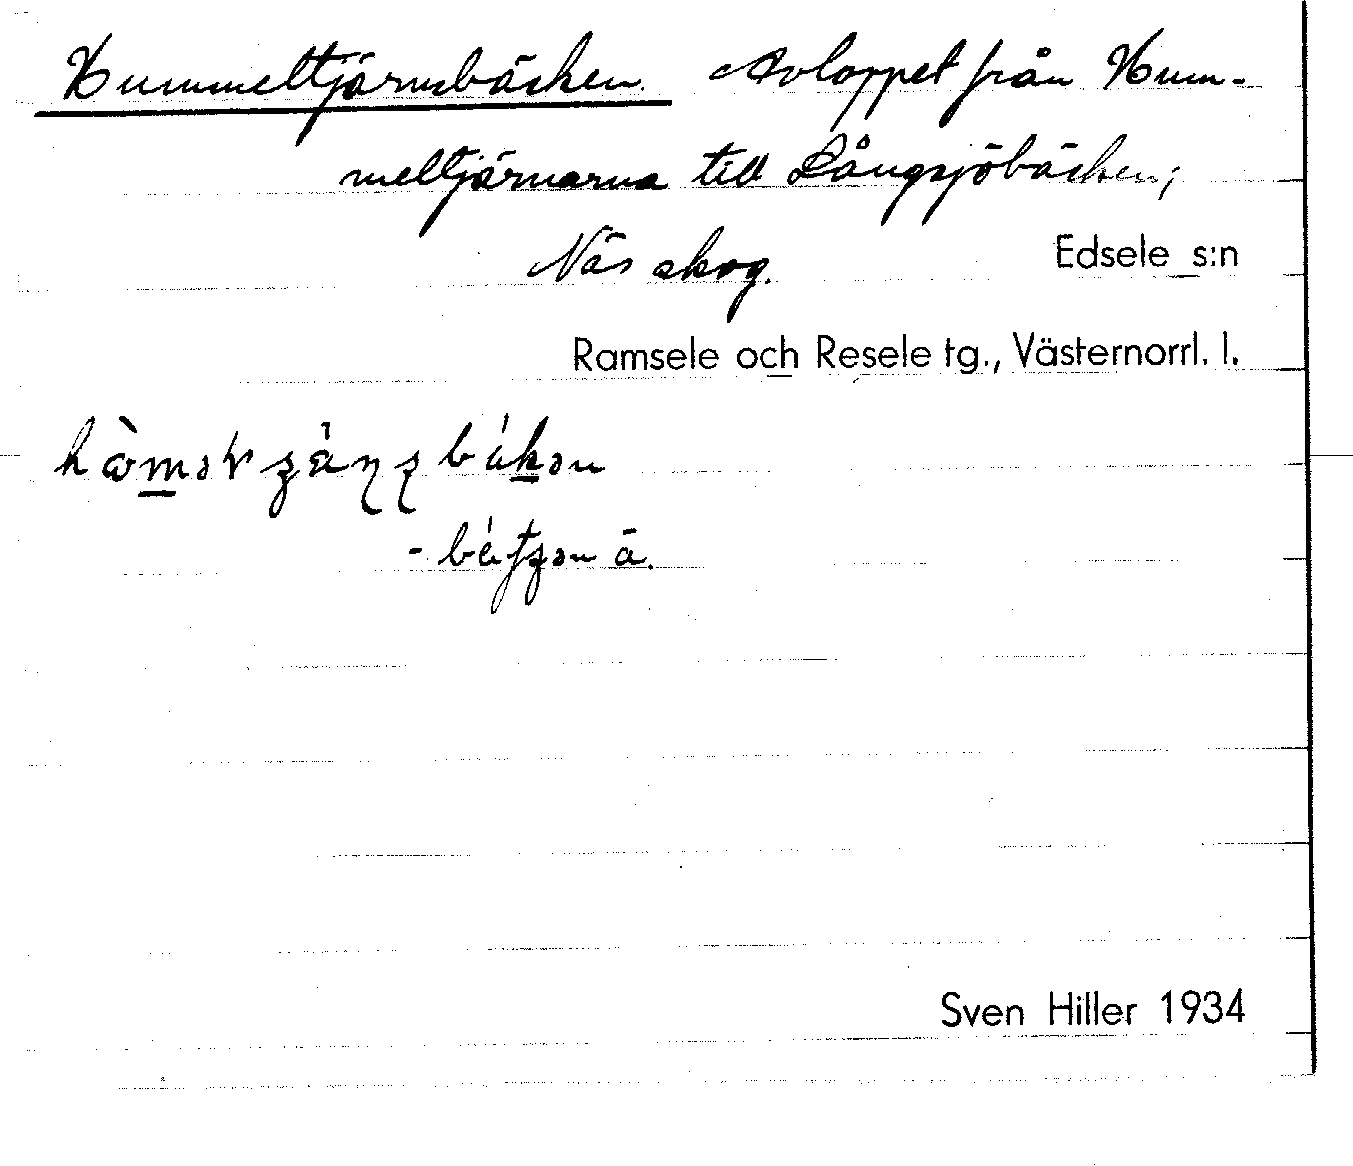 Hummeltjärnsbäcken. Avloppet från Hum-
meltjärnarna till Långsjöbäcken;
Näs skog. Edsele s:n
Ramsele och Resele tg., Västernorrl. l.
ä.
Sven Hiller 1934